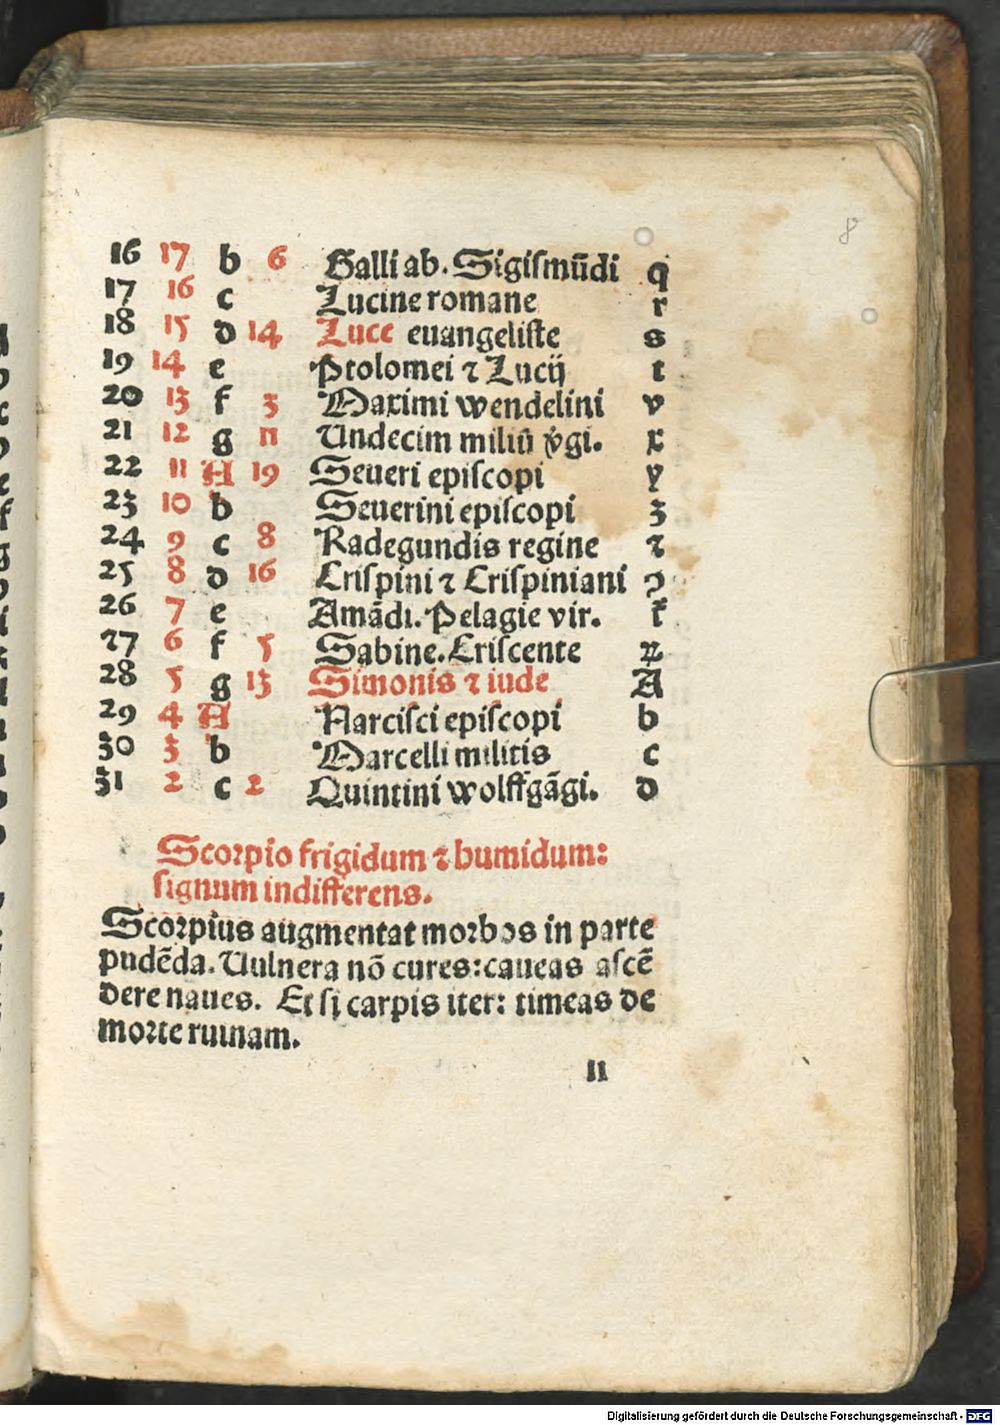 8
16 17 b 6 Galli ab. Sigiſmūdi q
17 16 c Lucine romane r
18 15 d 14 Luce euangeliſte s
19 14 e Ptolomei ⁊ Lucij t
20 13 f 3 Maximi wendelini v
21 12 g 11 Undecim miliū v̾gi. x
22 11 A 19 Seueri epiſcopi y
23 10 b Seuerini epiſcopi z
24 9 c 8 Radegundis regine ⁊
25 8 d 16 Criſpini ⁊ Criſpiniani ꝯ
26 7 e Amādi. Pelagie vir.
27 6 f 5 Sabine. Criſcente
28 5 g 13 Simonis ⁊ iude A
29 4 A Narciſci epiſcopi b
30 3 b Marcelli militis c
31 2 c 2 Quintini wolffgāgi. d
Scorpio frigidum ⁊ humidum:
ſignum indifferens.
Scorpius augmentat morbos in parte
pudēda. Uulnera nō cures: caueas aſcē
dere naues. Et ſi carpis iter: timeas de
morte ruinam.
11
Digitalisierung gefördert durch die Deutsche Forschungsgemeinschaft - DFG